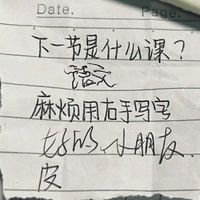 Date. Page.
下一节是什么课？
语文
麻烦用右手写字
好的 小朋友
皮